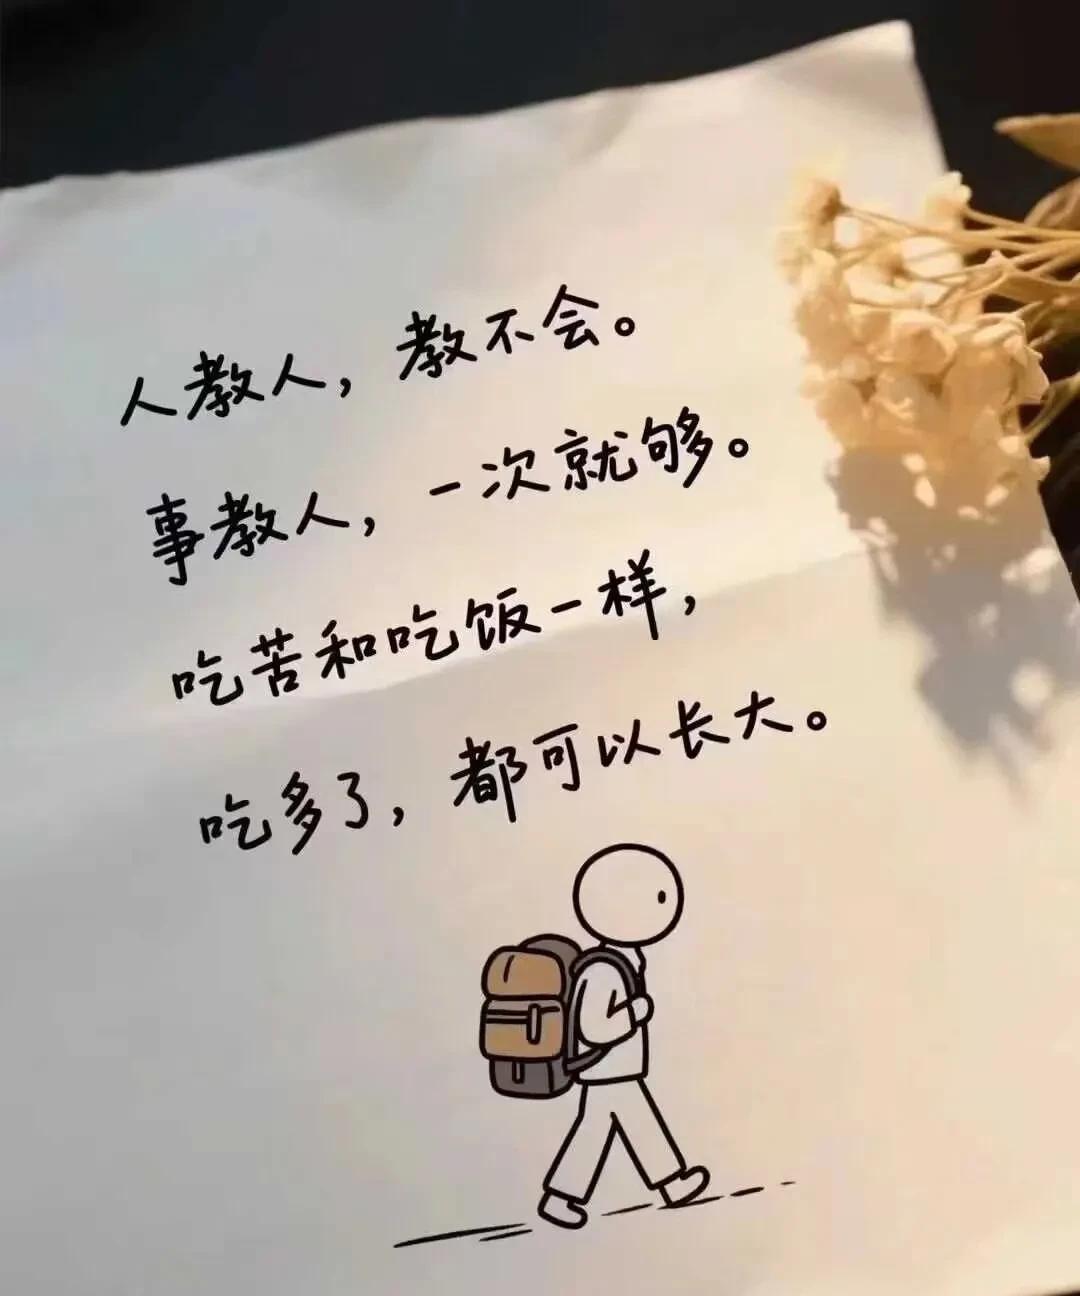 人教人，教不会。
事教人，一次就够。
吃苦和吃饭一样，
吃多了，都可以长大。